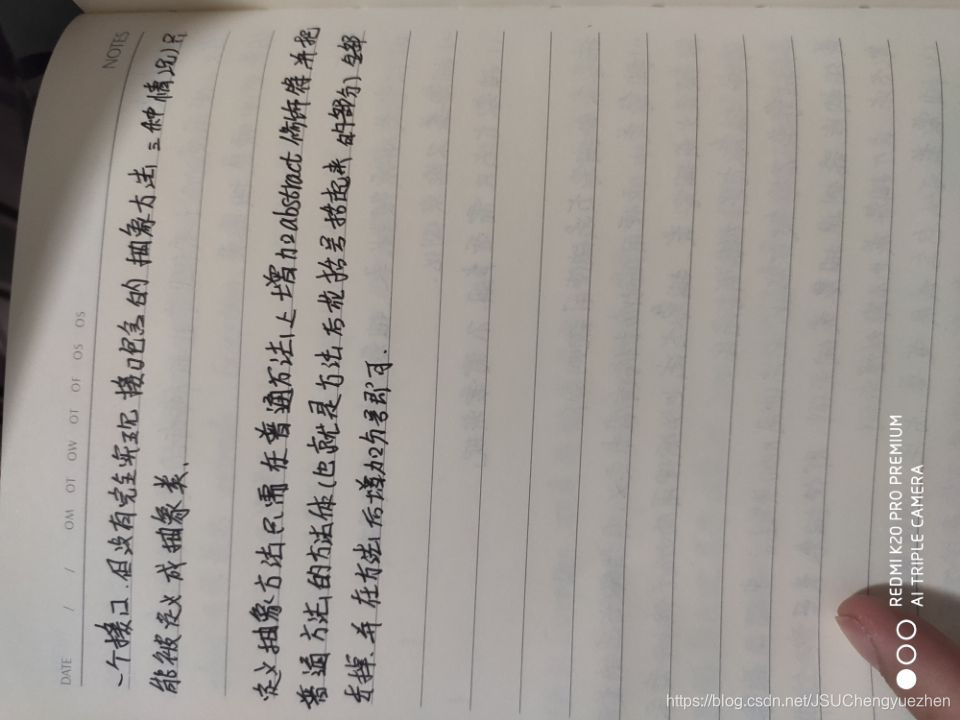 NOTES
DATE / / OM OT OW OT OF OS OS
一个接口.但没有完全实现接口包含的抽象方法)三种情况)只
能被定义成抽象类、
定义抽象方法只需在普通方法上增加abstract修饰符并把
普通方法的方法体(也就是方法后放括号括起来的部分)全部
去掉、并在方法后增加分号即可.
REDMI K20 PRO PREMIUM
AI TRIPLE CAMERA
https://blog.csdn.net/JSUChengyuezhen